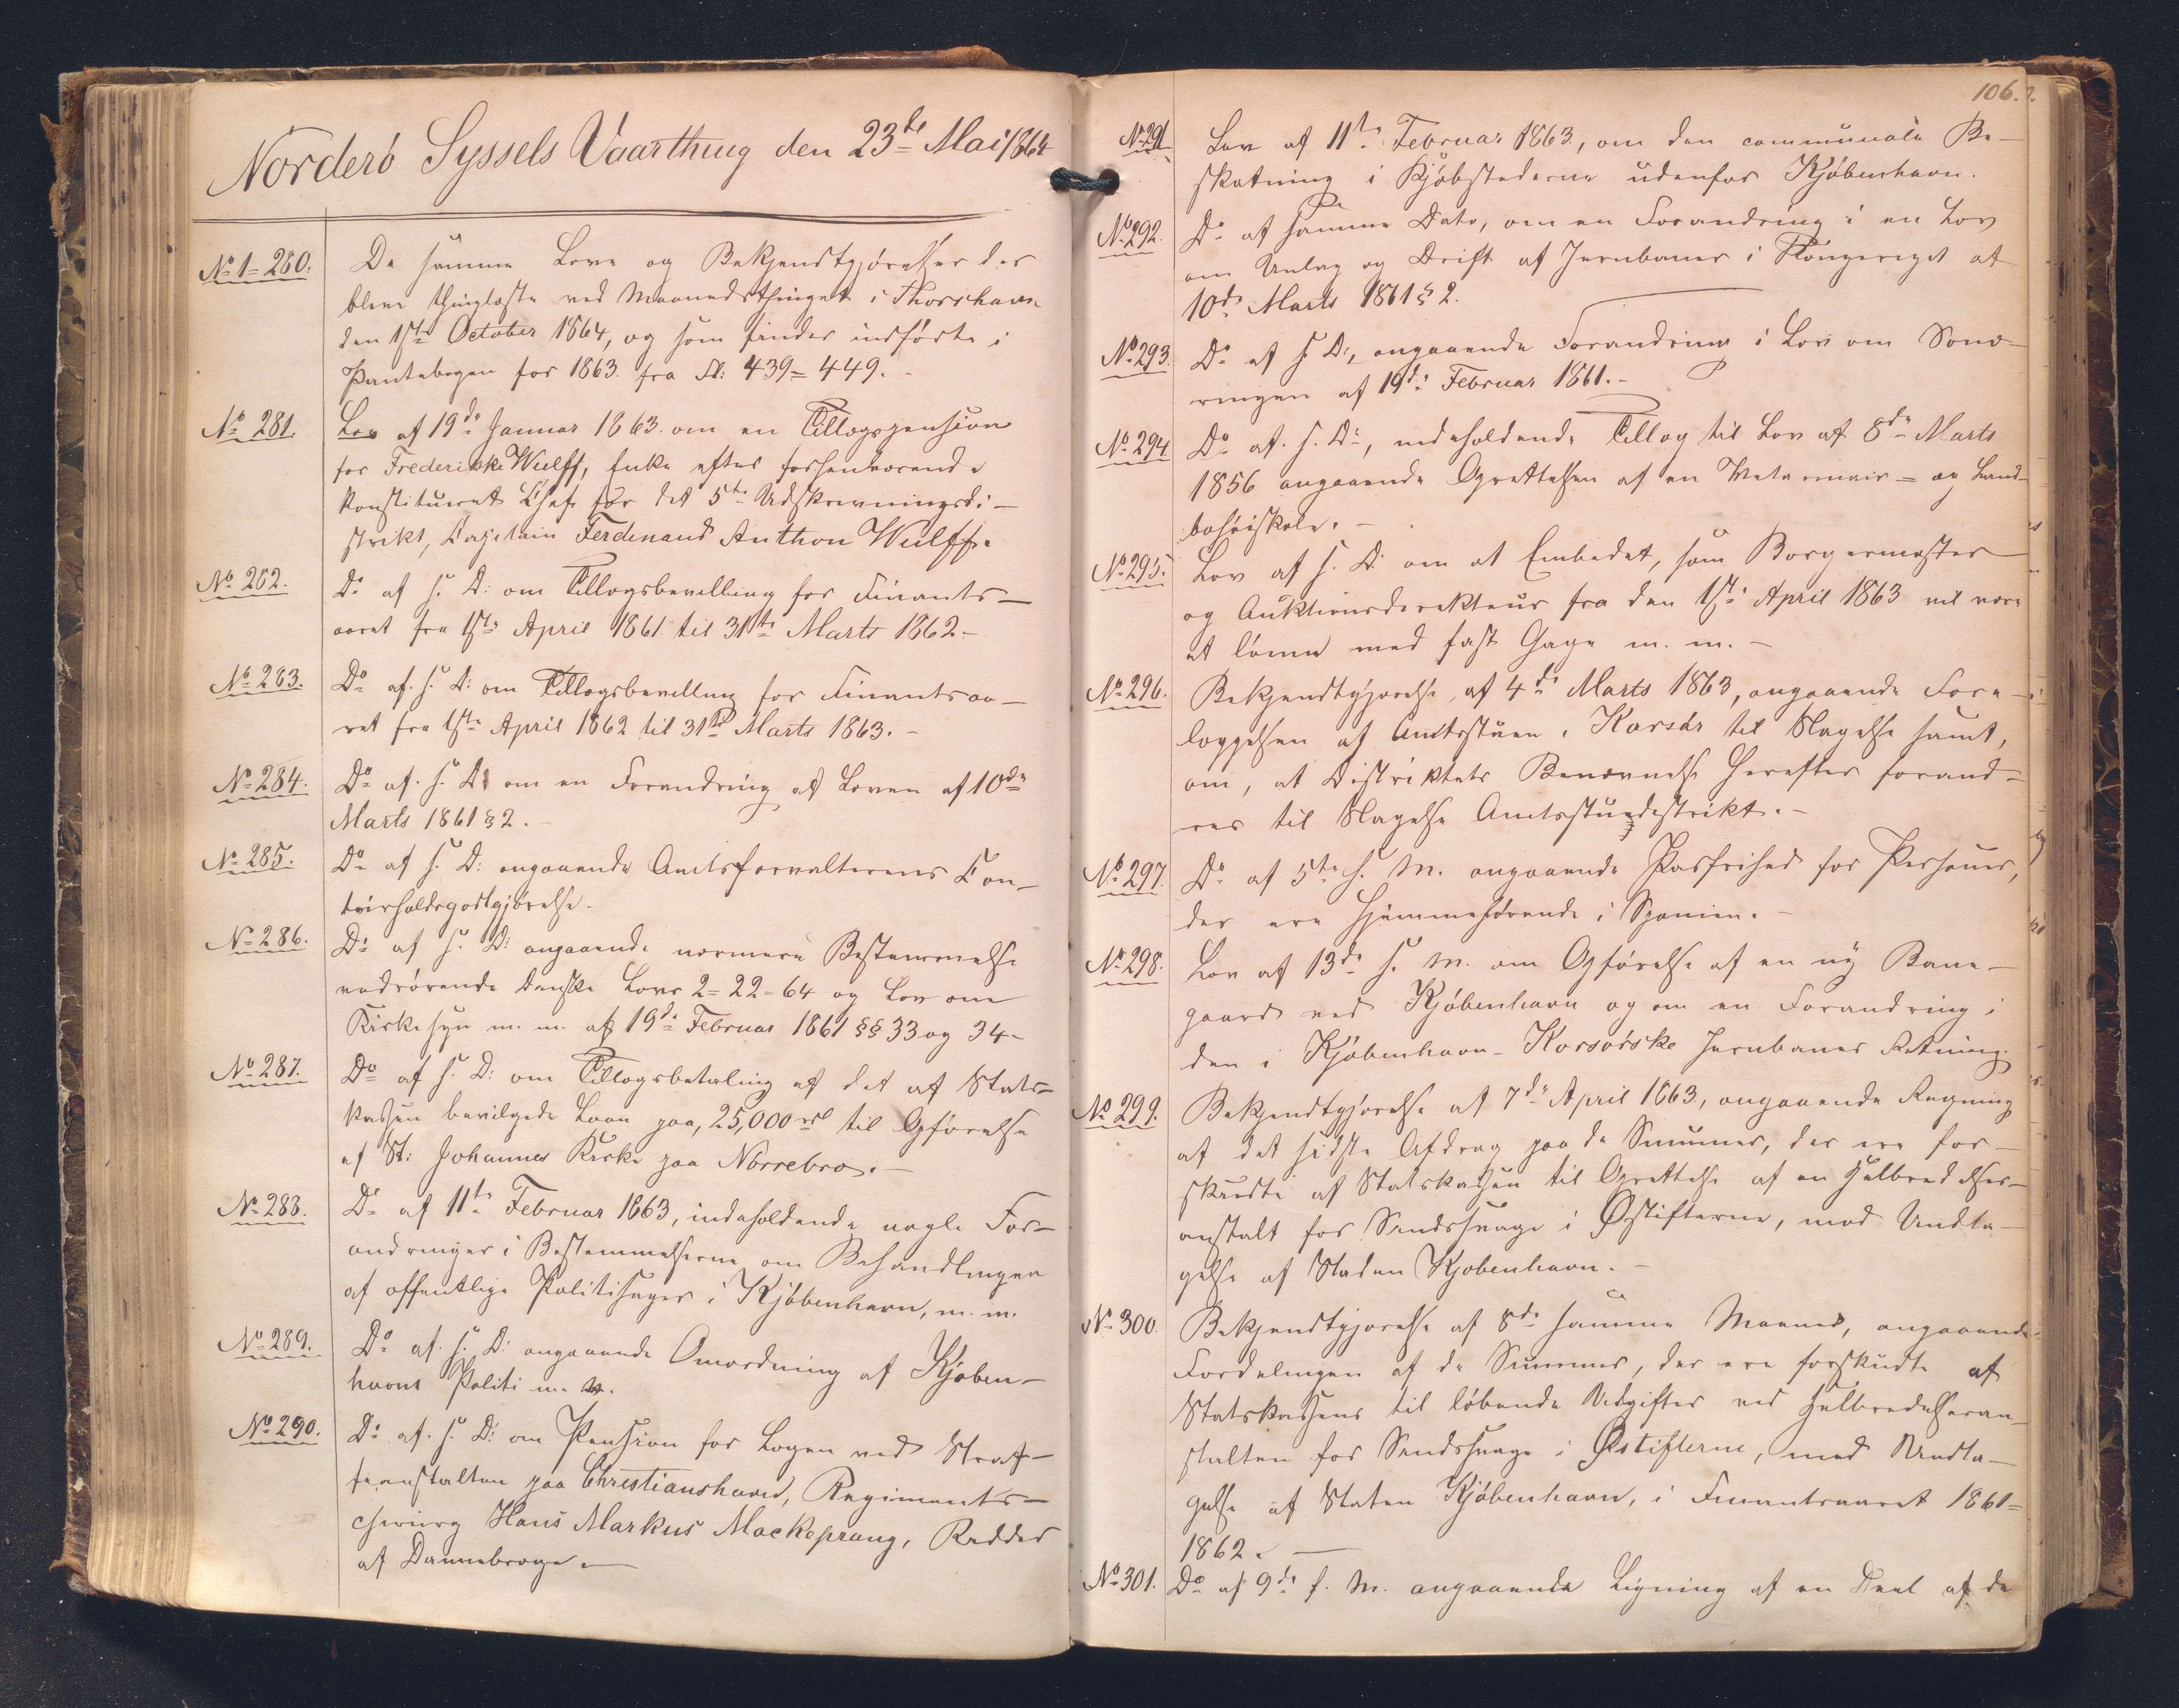 Norderö Syssels Vaarthing den 23de Mai 1864
No 1=280. De samme Love og Bekjendtgjörelser der
bleve thinglæste ved Maanedsthinget i Thorshavn
den 1ste October 1864, og som findes indförte i
Pantebogen for 1863 fra Fl: 439=449.-
No 281. Lov af 19de Januar 1863 om en Tillægspension
for Frederikke Wulff, Enke efter forhenværende
konstitueret Chef for det 5te Udskrivningsdi-
strikt, Capitain Ferdinand Anthon Wulff.
No 282. Do af s. D: om Tillægsbevilling for Finants-
aaret fra 1ste April 1861 til 31te Marts 1862.-
No 283. Do af. s. D: om Tillægsbevilling for Finantsaa-
ret fra 1ste April 1862 til 31te Marts 1863.-
No 284. Do af. s. D: om en Forandring af Loven af 10de
Marts 1861 § 2.-
No 285. Do af s. D: angaaende Amtsforvalterens Con-
toirholdsgodtgjörelse.-
No 286. Do af s. D: angaaende nærmere Bestemmelse
vedrörende danske Lovs 2=22=64 og Lov om
Kirkesyn m. m. af 19de Februar 1861 §§ 33 og 34-
No 287. Do af s. D: om Tillægsbetaling af det af Stats=
kassen bevilgede Laan paa, 25,000 rd til Opförelse
af St: Johannes Kirke paa Nörrebro.-
No 288. Do af 11te Februar 1863, indeholdende nogle For-
andringer i Bestemmelserne om Behandlingen
af offentlige Politisager i Kjöbenhavn, m. m.
No 289. Do af. s. D: angaaende Omordning af Kjöben-
havns Politi m. v.
No 290. Do af. s. D: om Pension for Lægen ved Straf-
feanstalten paa Christianshavn, Regiments-
chirurg Hans Markus Mackeprang, Ridder
af Dannebroge.-
106.
No 291. Lov af 11te Februar 1863, om den communale Be-
skatning i Kjöbstederne udenfor Kjöbenhavn.
No 292. Do af samme Dato, om en Forandring i en Lov
om Anlæg og Drift af Jernbaner i Kongeriget af
10de Marts 1861 § 2.
No 293. Do af s. D:, angaaende Forandring i Lov om Sono-
ringen af 19de Februar 1861.-
No 294. Do af. s. D:, indeholdende Tillæg til Lov af 8de Marts
1856 angaaende Oprettelsen af en Veterinair= og Land-
bohöiskole.-
No 295. Lov af s. D: om at Embedet, som Borgermester
og Auktionsdirekteur fra den 1ste April 1863 vil være
at lönne med fast Gage m. m.-
No 296. Bekjendtgjörelse af 4de Marts 1863, angaaende For-
læggelsen af Amtstuen i Korsör til Slagelse samt,
om, at Distriktets Benævnelse herefter forand=
res til Slagelse Amtsstuedistrikt.-
No 297. Do af 5te s. M. angaaende Pasfrihed for Personer,
der ere hjemmehörende i Spanien.-
No 298. Lov af 13de s. M. om Opförelse af en ny Bane-
gaard ved Kjöbenhavn og om en Forandring i
den i Kjöbenhavn-Korsörske Jernbanes Retning.
No 299. Bekjendtgjörelse af 7de April 1863, angaaende Regning
af det sidste Afdrag paa de Summer, der ere for-
skudte af Statskassen til Oprettelse af en Helbredelses-
anstalt for Sindssvage i Östifterne, med Undta-
gelse af Staden Kjöbenhavn.-
No 300. Bekjendtgjörelse af 8de samme Maaned, angaaende
Fordelingen af de Summer, der ere forskudte af
Statskassens til löbende Udgifter ved Helbredelsesan-
stalten for Sindssvage i Östifterne, med Undta-
gelse af Staten Kjöbenhavn, i Finantsaaret 1861=
1862.-
No 301. Do af 9de s. M. angaaende Ligning af en Deel af de